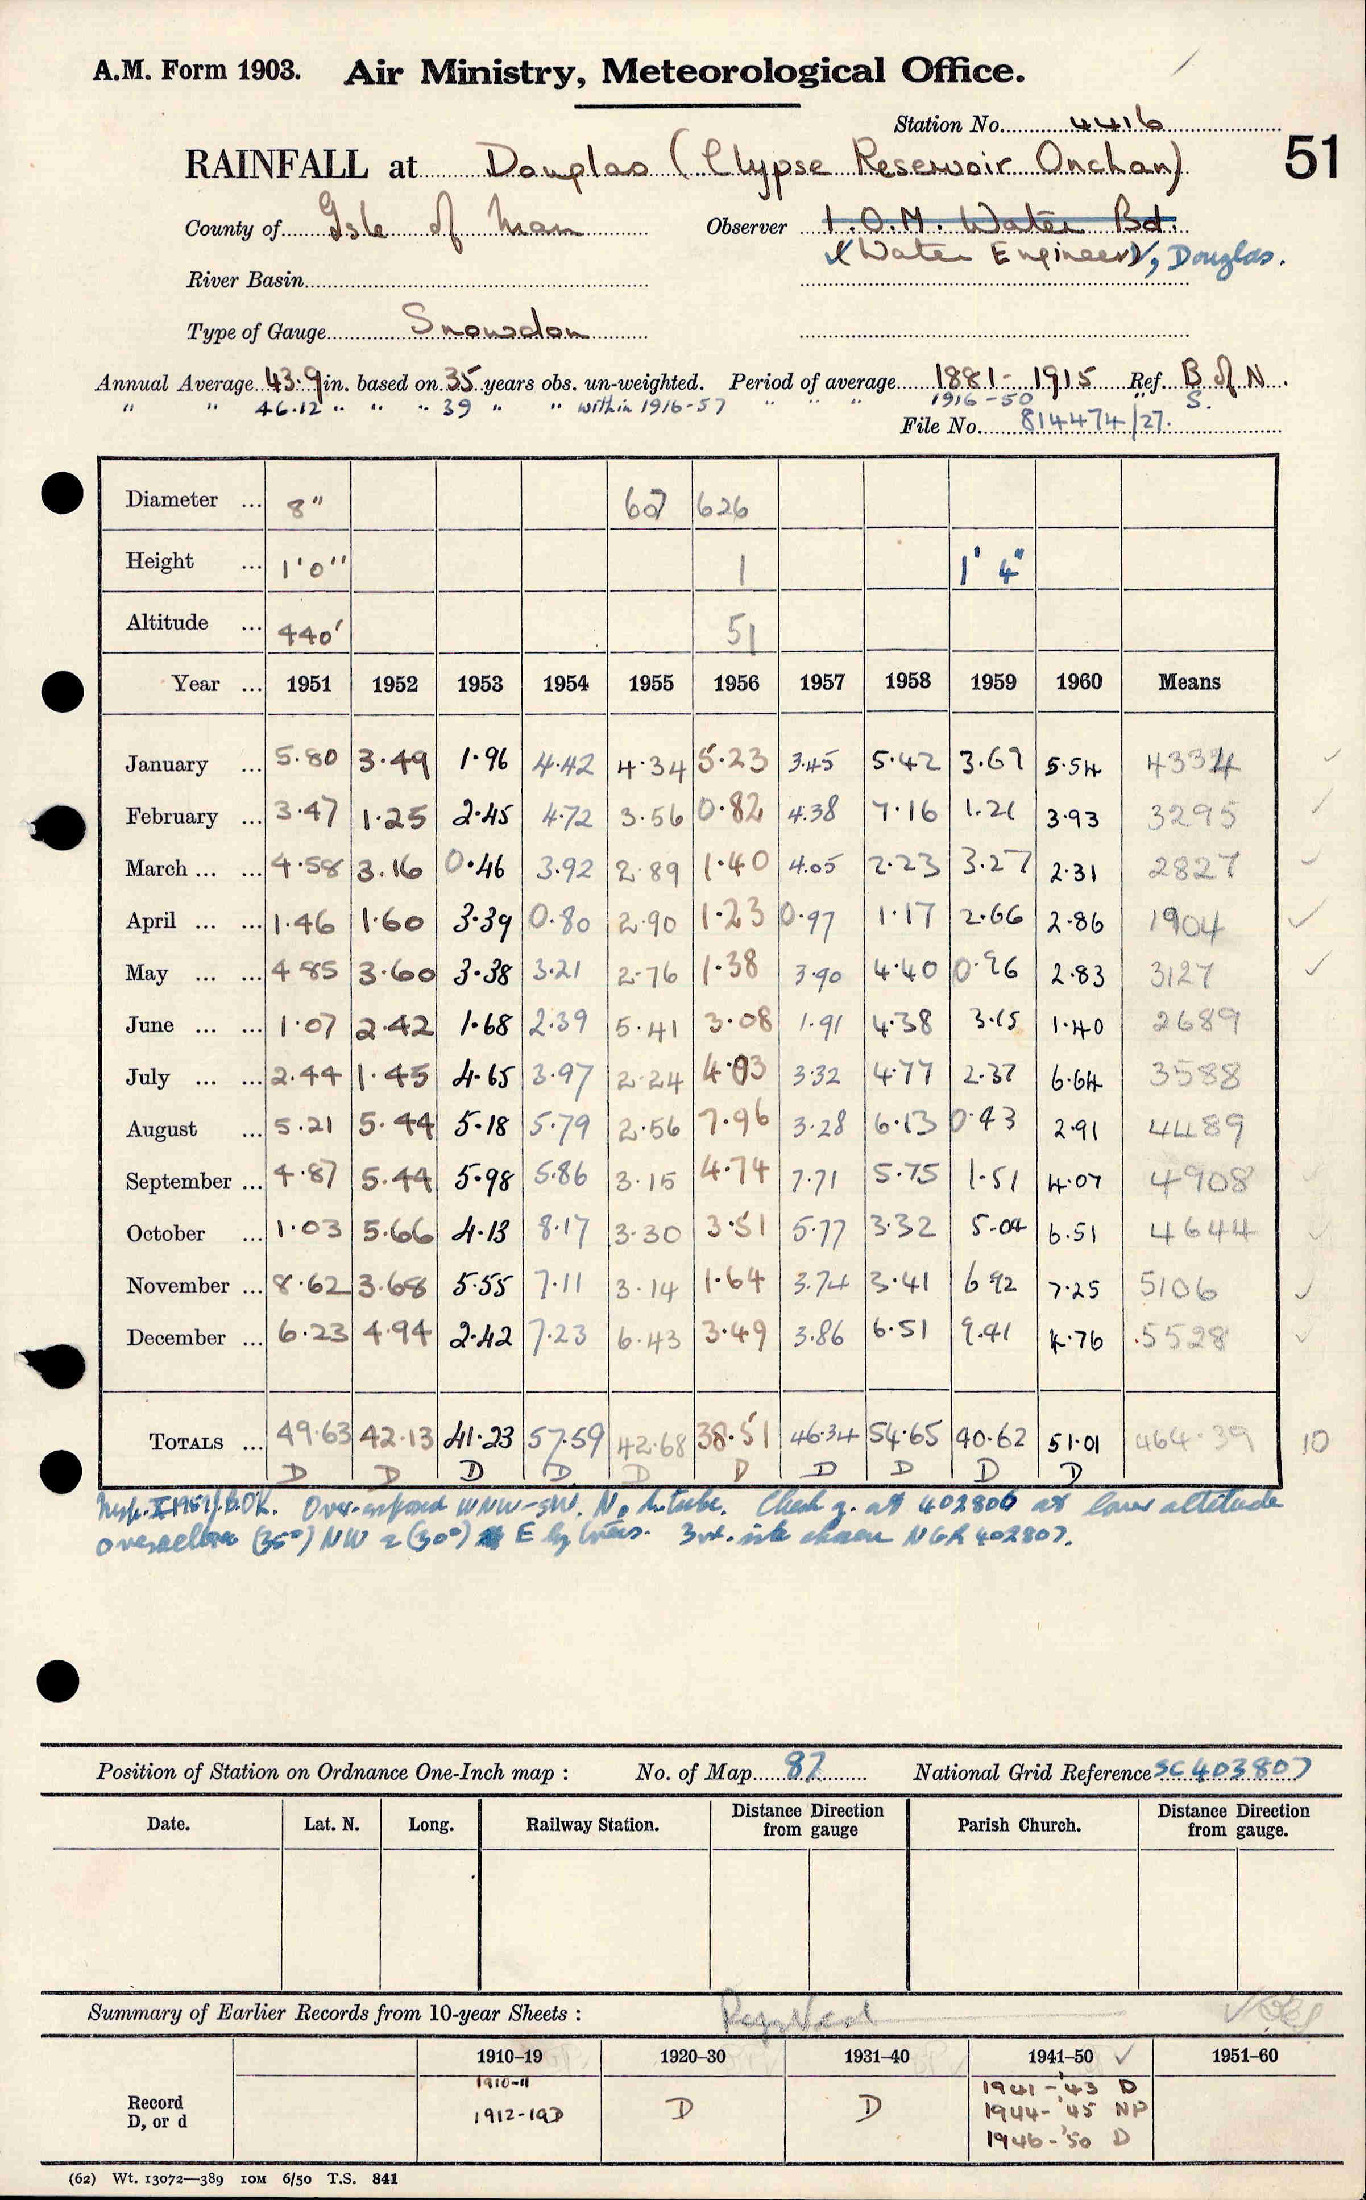 A.M. Form 1903. Air Ministry, Meteorological Office.
Station No. 4416
51
RAINFALL at Douglas (Clypse Reservoir Onchan)
County of Isle of Man Observer I.O.M. Water Bd.
(Water Engineer), Douglas.
River Basin
Type of Gauge Snowdon
Annual Average 43.9 in. based on 35 years obs. un-weighted. Period of average 1881-1915 Ref. B of N.
" " 46.12 " " " 39 " " within 1916-57 " " " 1916-50 " S.
File No. 814474/27.
Diameter ... 8" 607 626
Height ... 1'0" 1 1' 4"
Altitude ... 440' 51
Year ... 1951 1952 1953 1954 1955 1956 1957 1958 1959 1960 Means
January ... 5.80 3.49 1.96 4.42 4.34 5.23 3.45 5.42 3.67 5.54 4334
February ... 3.47 1.25 2.45 4.72 3.56 0.82 4.38 7.16 1.21 3.93 3295
March ... ... 4.58 3.16 0.46 3.92 2.89 1.40 4.05 2.23 3.27 2.31 2827
April ... ... 1.46 1.60 3.39 0.80 2.90 1.23 0.97 1.17 2.66 2.86 1904
May ... ... 4.85 3.60 3.38 3.21 2.76 1.38 3.90 4.40 0.96 2.83 3127
June ... ... 1.07 2.42 1.68 2.39 5.41 3.08 1.91 4.38 3.15 1.40 2689
July ... ... 2.44 1.45 4.65 3.97 2.24 4.03 3.32 4.77 2.37 6.64 3588
August ... 5.21 5.44 5.18 5.79 2.56 7.96 3.28 6.13 0.43 2.91 4489
September ... 4.87 5.44 5.98 5.86 3.15 4.74 7.71 5.75 1.51 4.07 4908
October ... 1.03 5.66 4.13 8.17 3.30 3.51 5.77 3.32 5.04 6.51 4644
November ... 8.62 3.68 5.55 7.11 3.14 1.64 3.74 3.41 6.92 7.25 5106
December ... 6.23 4.94 2.42 7.23 6.43 3.49 3.86 6.51 9.41 4.76 5528
TOTALS ... 49.63 42.13 41.23 57.59 42.68 38.51 46.34 54.65 40.62 51.01 464.39 10
D D D D D D D D D D
Over-exposed WNW-SW. No tube. Check g. at 402806 at lower altitude
(35°) NW & (30°) E by trees. 3rd. site chosen NGR 402807.
Position of Station on Ordnance One-Inch map : No. of Map 87 National Grid Reference SC 403807
Date. Lat. N. Long. Railway Station. Distance Direction from gauge Parish Church. Distance Direction from gauge.
Summary of Earlier Records from 10-year Sheets :
1910–19 1920–30 1931–40 1941–50 1951–60
Record D, or d 1910-11 1912-19D D D 1941-'43 D
1944-'45 NP
1946-'50 D
(62) Wt. 13072—389 10M 6/50 T.S. 841